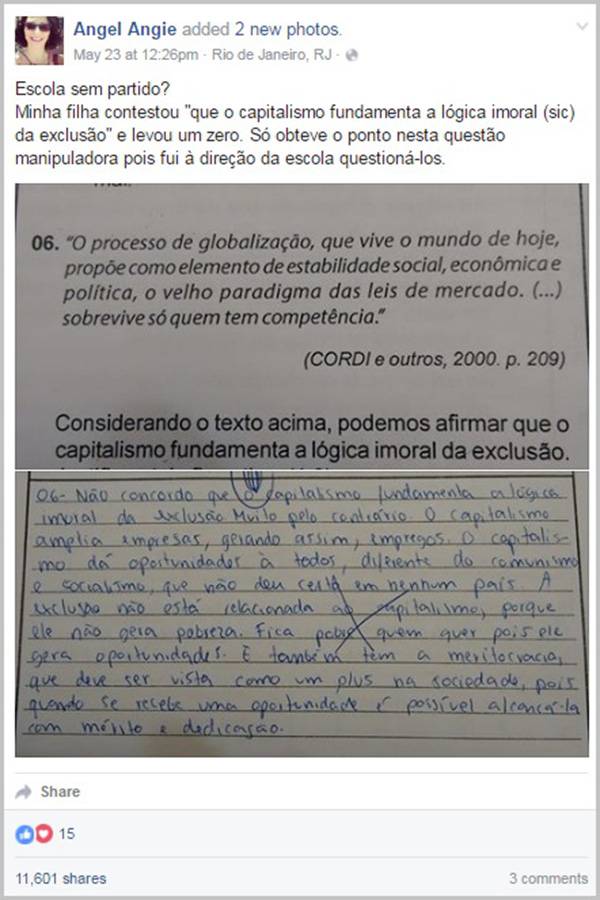 Angel Angie added 2 new photos.
May 23 at 12:26pm · Rio de Janeiro, RJ ·
Escola sem partido?
Minha filha contestou "que o capitalismo fundamenta a lógica imoral (sic)
da exclusão" e levou um zero. Só obteve o ponto nesta questão
manipuladora pois fui à direção da escola questioná-los.
06. "O processo de globalização, que vive o mundo de hoje,
propõe como elemento de estabilidade social, econômica e
política, o velho paradigma das leis de mercado. (...)
sobrevive só quem tem competência."
(CORDI e outros, 2000. p. 209)
Considerando o texto acima, podemos afirmar que o
capitalismo fundamenta a lógica imoral da exclusão.
06- Não concordo que o capitalismo fundamenta a lógica
imoral da exclusão Muito pelo contrário. O capitalismo
amplia empresas, gerando assim, empregos. O capitalis-
mo dá oportunidades à todos, diferente do comunismo
e socialismo, que não deu certo em nenhum país. A
exclusão não está relacionada ao capitalismo, porque
ele não gera pobreza. Fica pobre quem quer pois ele
gera oportunidades. E também tem a meritocracia,
que deve ser vista como um plus na sociedade, pois
quando se recebe uma oportunidade é possível alcançá-la
com mérito e dedicação.
Share
15
11,601 shares
3 comments